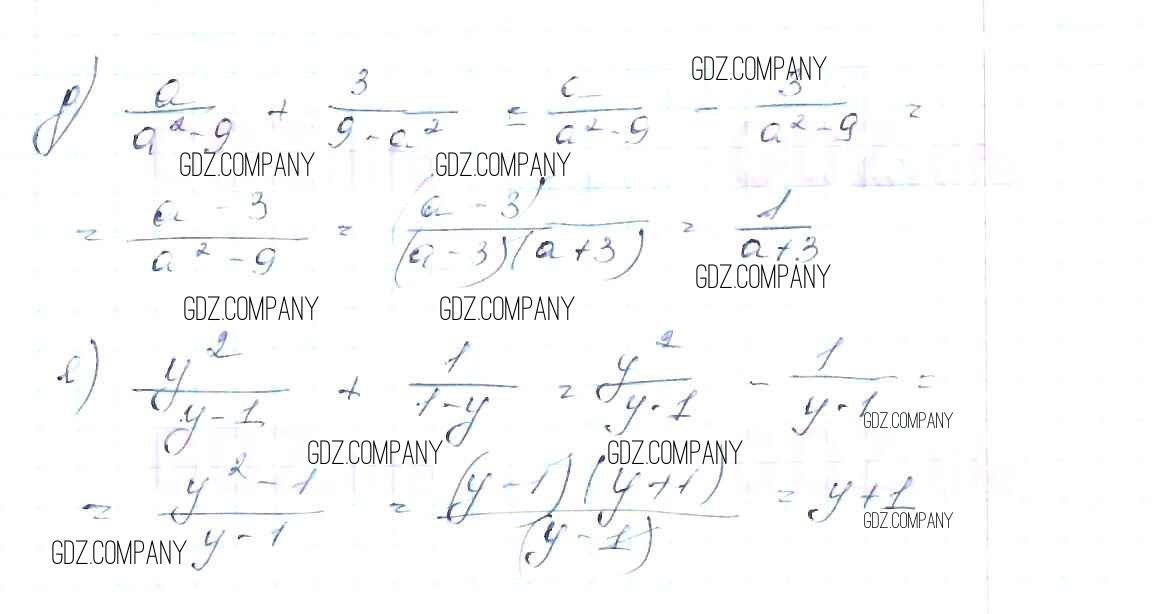 д) a/(a² - 9) + 3/(9 - a²) = a/(a² - 9) - 3/(a² - 9) =
GDZ.COMPANY
GDZ.COMPANY GDZ.COMPANY
= (a - 3)/(a² - 9) = (a - 3)/((a - 3)(a + 3)) = 1/(a + 3)
GDZ.COMPANY
GDZ.COMPANY GDZ.COMPANY
е) y²/(y - 1) + 1/(1 - y) = y²/(y - 1) - 1/(y - 1) =
GDZ.COMPANY
GDZ.COMPANY GDZ.COMPANY
= (y² - 1)/(y - 1) = ((y - 1)(y + 1))/(y - 1) = y + 1
GDZ.COMPANY
GDZ.COMPANY